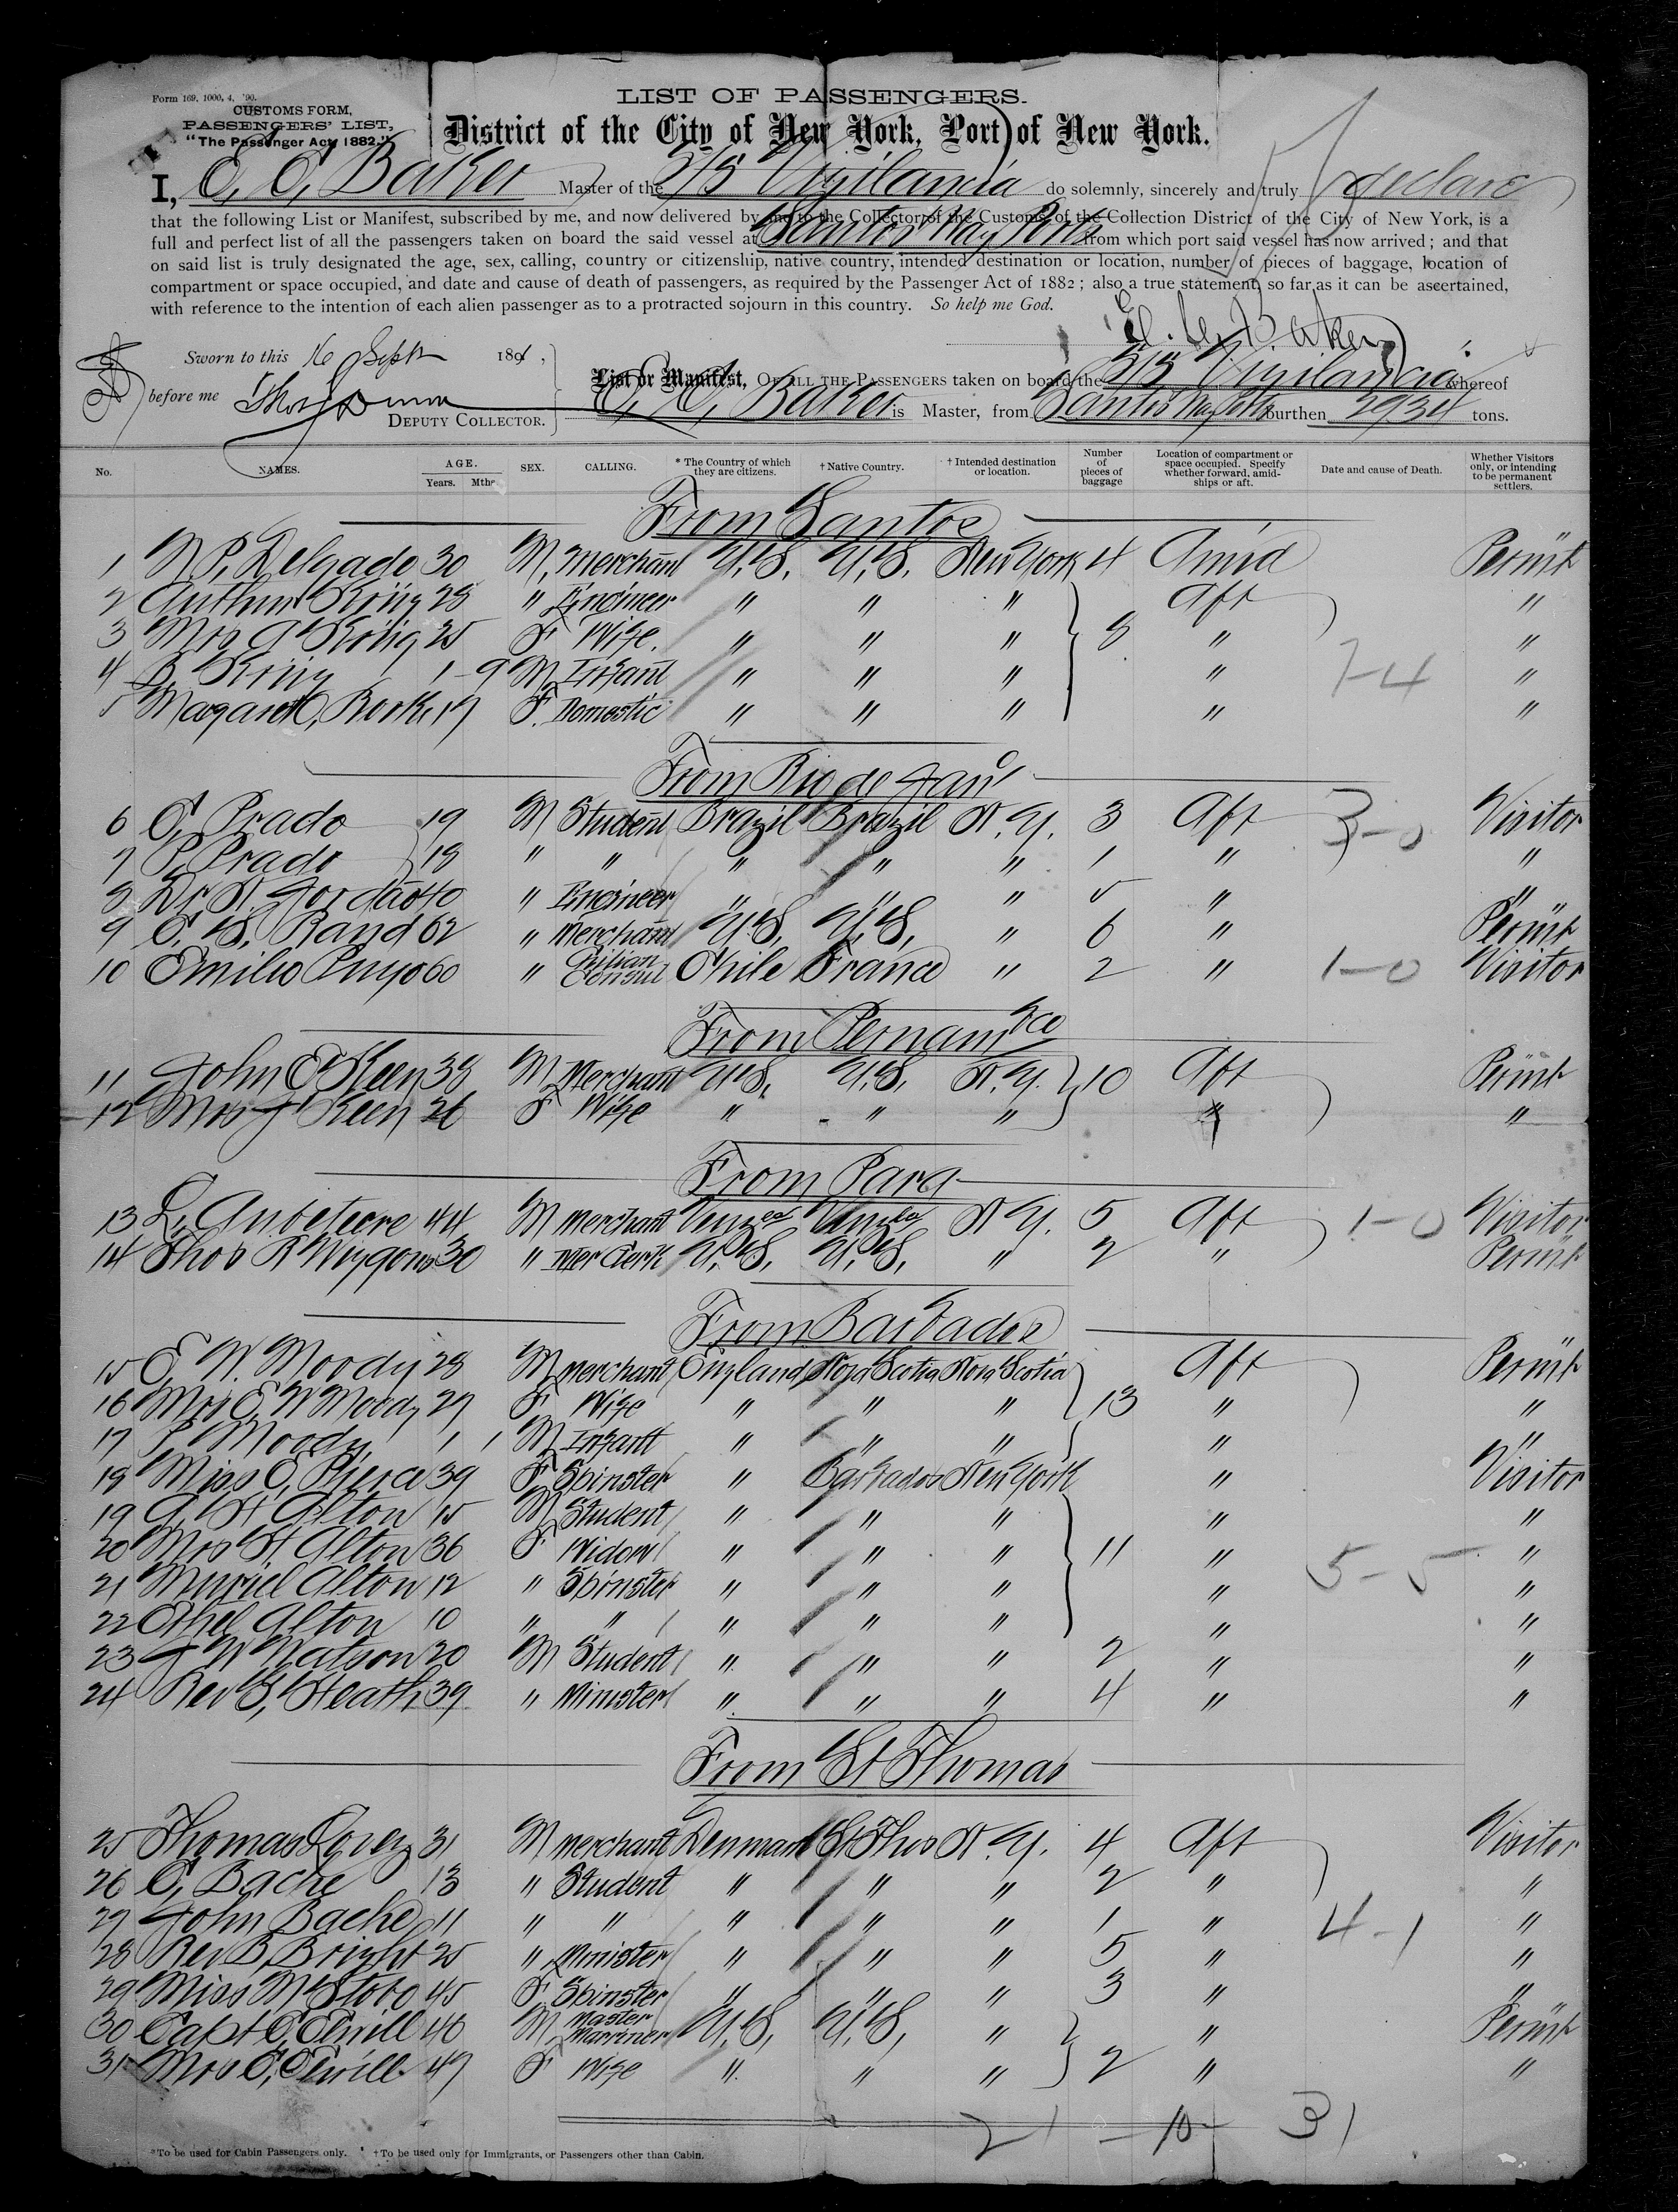 Form 169, 1000, 4, '90.
CUSTOMS FORM,
PASSENGERS' LIST,
"The Passenger Act, 1882."
LIST OF PASSENGERS.
District of the City of New York, Port of New York.
I, E. C. Baker Master of the S/S Vigilancia do solemnly, sincerely and truly declare
that the following List or Manifest, subscribed by me, and now delivered by me to the Collector of the Customs of the Collection District of the City of New York, is a
full and perfect list of all the passengers taken on board the said vessel at Santos Way Ports from which port said vessel has now arrived; and that
on said list is truly designated the age, sex, calling, country or citizenship, native country, intended destination or location, number of pieces of baggage, location of
compartment or space occupied, and date and cause of death of passengers, as required by the Passenger Act of 1882; also a true statement, so far as it can be ascertained,
with reference to the intention of each alien passenger as to a protracted sojourn in this country. So help me God.
E. C. Baker
Sworn to this 16 Sept 1891,
before me
DEPUTY COLLECTOR.
List or Manifest, OF ALL THE PASSENGERS taken on board the S/S Vigilancia whereof
E. C. Baker is Master, from Santos Way Ports burthen 2934 tons.
No. NAMES. AGE. Years. Mths. SEX. CALLING. * The Country of which they are citizens. † Native Country. † Intended destination or location. Number of pieces of baggage Location of compartment or space occupied. Specify whether forward, amidships or aft. Date and cause of Death. Whether Visitors only, or intending to be permanent settlers.
From Santos
1 N. P. Delgado 30 M. Merchant U.S. U.S. New York 4 Amid Permt
2 Arthur König 28 " Engineer " " " Aft "
3 Mrs A König 25 F Wife. " " " 8 " "
4 B. König 1-9 M Infant " " " " "
5 Magaret C, Rorke 19 F. Domestic " " " " "
7-4
From Rio de Jano
6 C, Prado 19 M Student Brazil Brazil N.Y. 3 Aft Visitor
7 P, Prado 18 " " " " " 1 " "
3-0
8 Dr N. Jordao 40 " Engineer " " " 5 " "
9 E. S. Rand 62 " Merchant U.S. U.S. " 6 " Permt
10 Emilio Puyo 60 " Chilian Consul Chile France " 2 " 1-0 Visitor
From Pernambco
11 John E Keen 38 M Merchant U.S. U.S. N.Y. 10 Aft Permt
12 Mrs J Keen 26 F Wife " " " " "
From Para
13 44 M Merchant Venzea Venzla N Y. 5 Aft 1-0 Visitor
14 Thos R Wiggons 30 " Mer Clerk U.S. U.S. " 2 " Permt
From Barbados
15 E, W. Moody 28 M Merchant England Nova Scotia Nova Scotia Aft Permt
16 Mrs E, W Moody 27 F Wife " " " 13 " "
17 P, Moody 1 1 M Infant " " " " "
18 Miss E, Pierce 39 F Spinster " Barbados New York " Visitor
19 A, H Alton 15 M Student " " " " "
20 Mrs H. Alton 36 F Widow " " " 11 " "
5-5
21 Muriel Alton 12 " Spinster " " " " "
22 Ethel Alton 10 " " " " " " "
23 J W Watson 20 M Student " " " 2 " "
24 Rev G, Heath 39 " Minister " " " 4 " "
From St Thomas
25 Thomas Lovez 31 M Merchant Denmark St Thos N.Y. 4 Aft Visitor
26 C, Bache 13 " Student " " " 2 " "
27 John Bache 11 " " " " " 1 " "
4-1
28 Rev B, Bright 25 " Minister " " " 5 " "
29 Miss M Stobo 45 F Spinster " " " 3 " "
30 Capt C, Elwill 46 M Master Marriner U.S, U.S, " " Permt
31 Mrs C, Elwill 47 F Wife " " " 2 " "
21 - 10 31
*To be used for Cabin Passengers only. †To be used only for Immigrants, or Passengers other than Cabin.